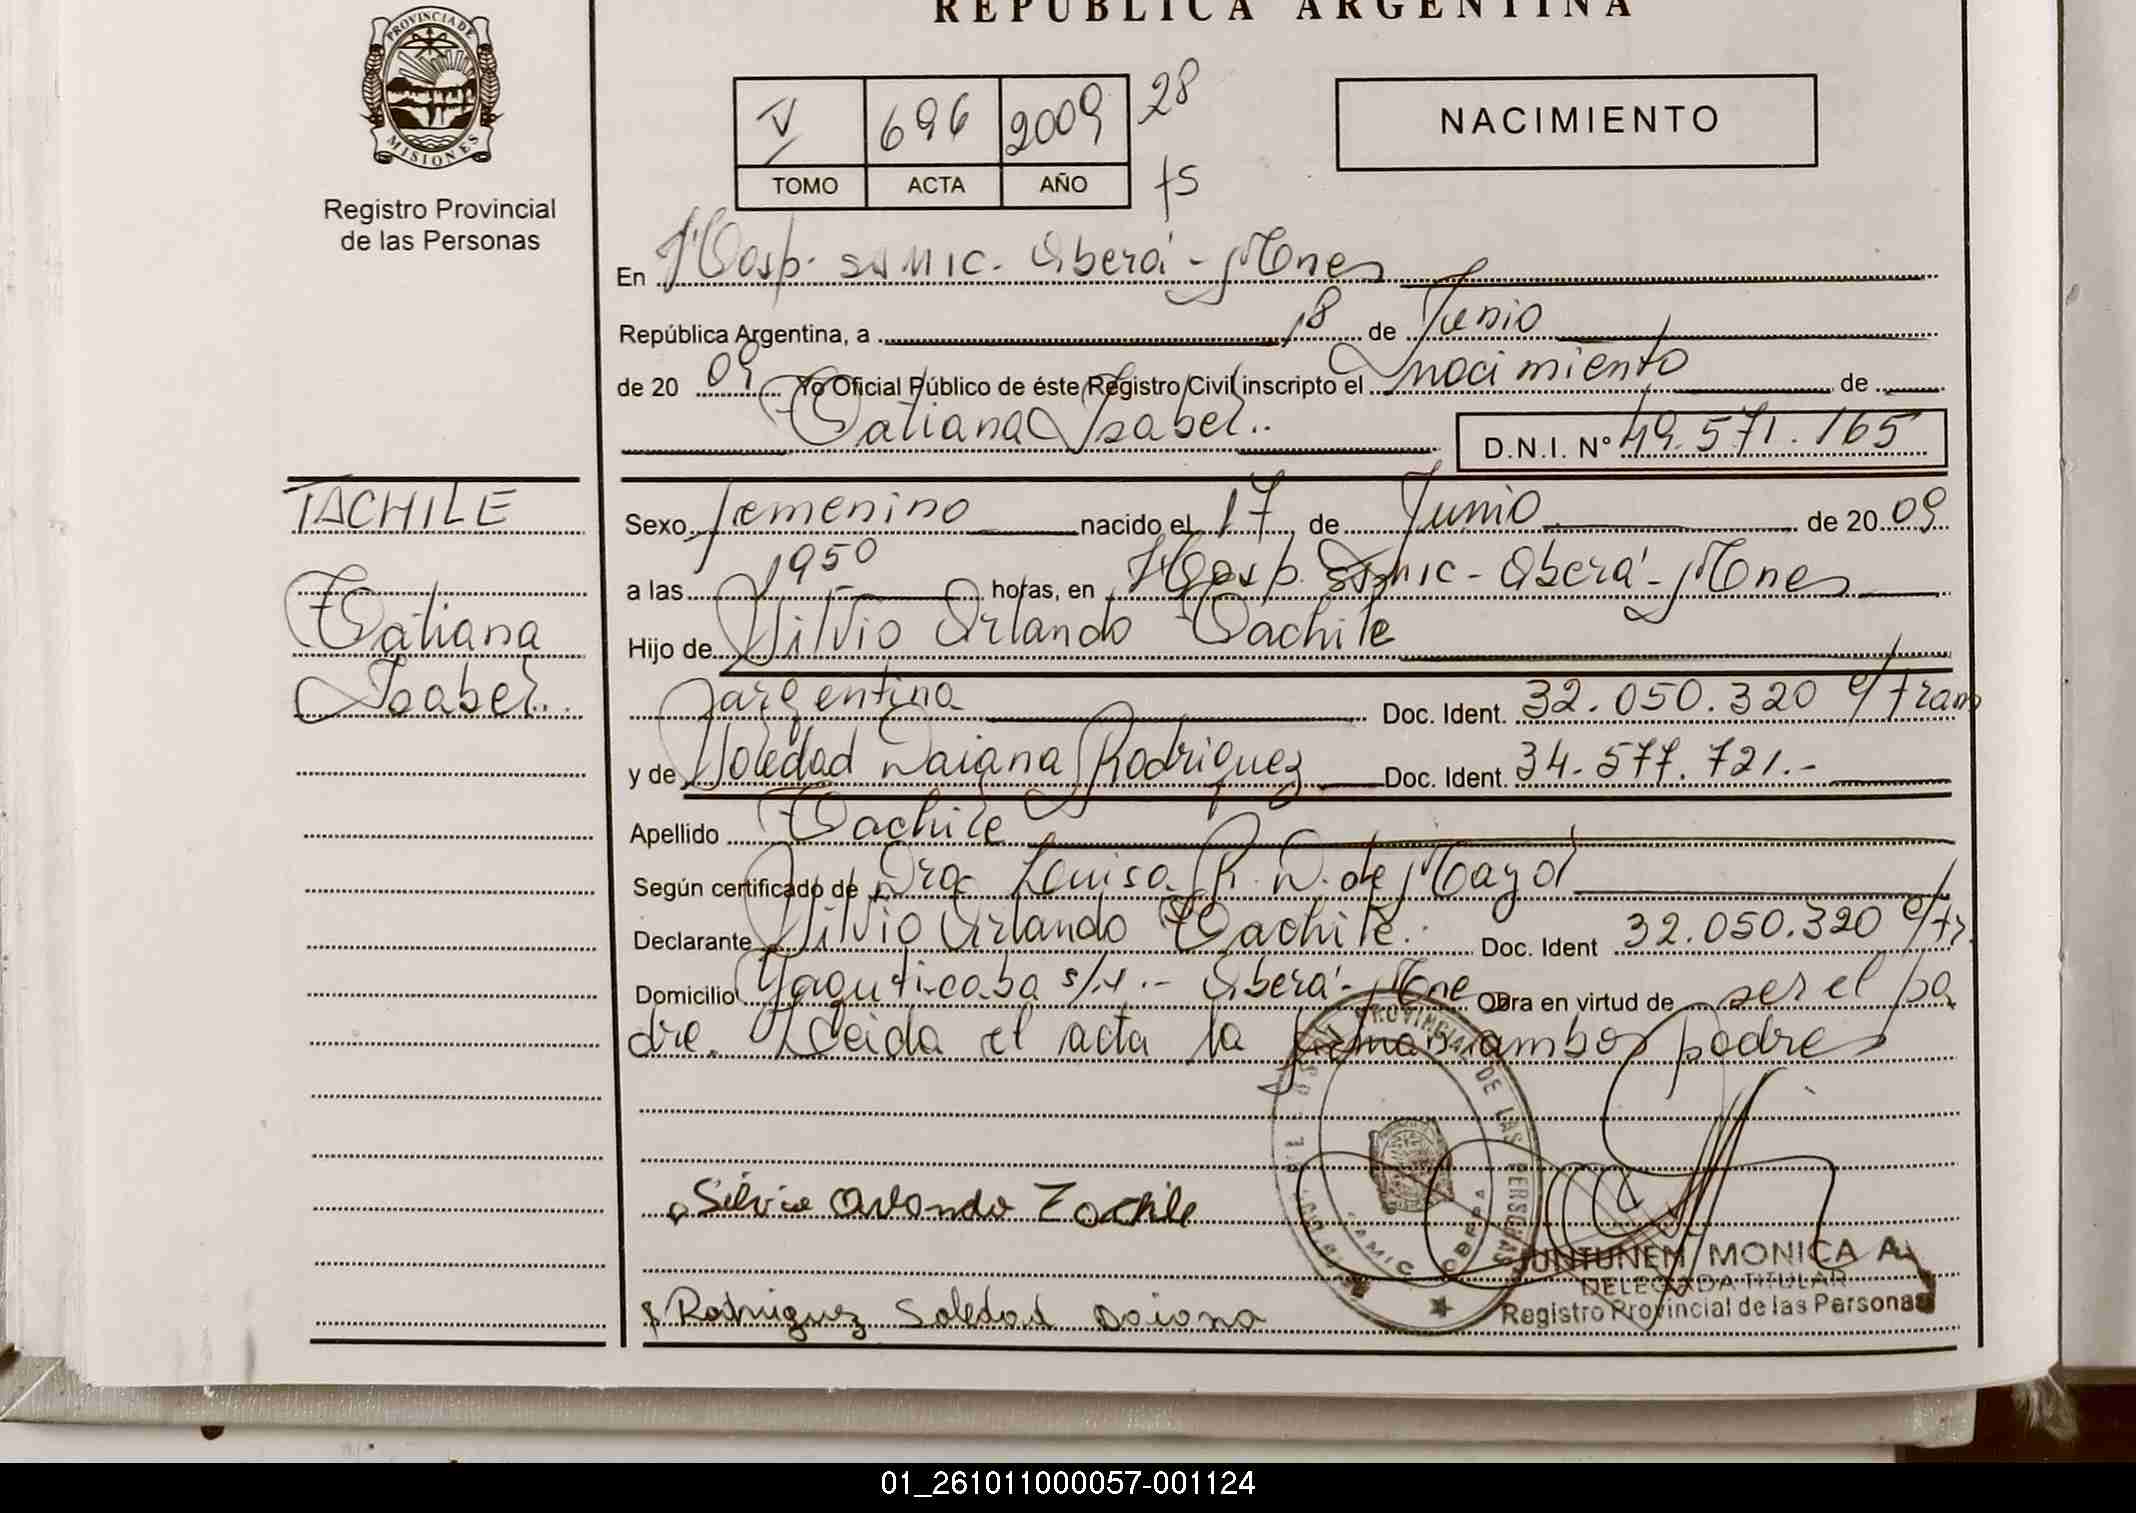 REPUBLICA ARGENTINA
PROVINCIA DE MISIONES
Registro Provincial
de las Personas
V 696 2009 28
TOMO ACTA AÑO fs
NACIMIENTO
En Hosp. SAMIC. Oberá - Mnes
República Argentina, a 18 de Junio
de 20 09 Yo Oficial Público de éste Registro Civil inscripto el nacimiento de
Tatiana Isabel..
D.N.I. Nº 49.571.165
TACHILE
Tatiana
Isabel..
Sexo femenino nacido el 17 de Junio de 20 09
a las 1950 horas, en Hosp. SAMIC - Oberá - Mnes
Hijo de Silvio Orlando Tachile
argentina Doc. Ident. 32.050.320 e/tram
y de Soledad Daiana Rodriguez Doc. Ident. 34.577.721.-
Apellido Tachile
Según certificado de Dra. Louisa R. D. de Mayol
Declarante Silvio Orlando Tachile. Doc. Ident 32.050.320 e/tr.
Domicilio Yaguticaba s/n.- Oberá - Mne Obra en virtud de ser el pa
dre. Leida el acta la firman ambos padres
PROVINCIAL DE LAS PERSONAS
SAMIC OBERA
Silvio Orlando Tachile
JUNTUNEN MONICA A.
DELEGADA TITULAR
Registro Provincial de las Personas
Rodriguez Soledad Daiana
01_261011000057-001124